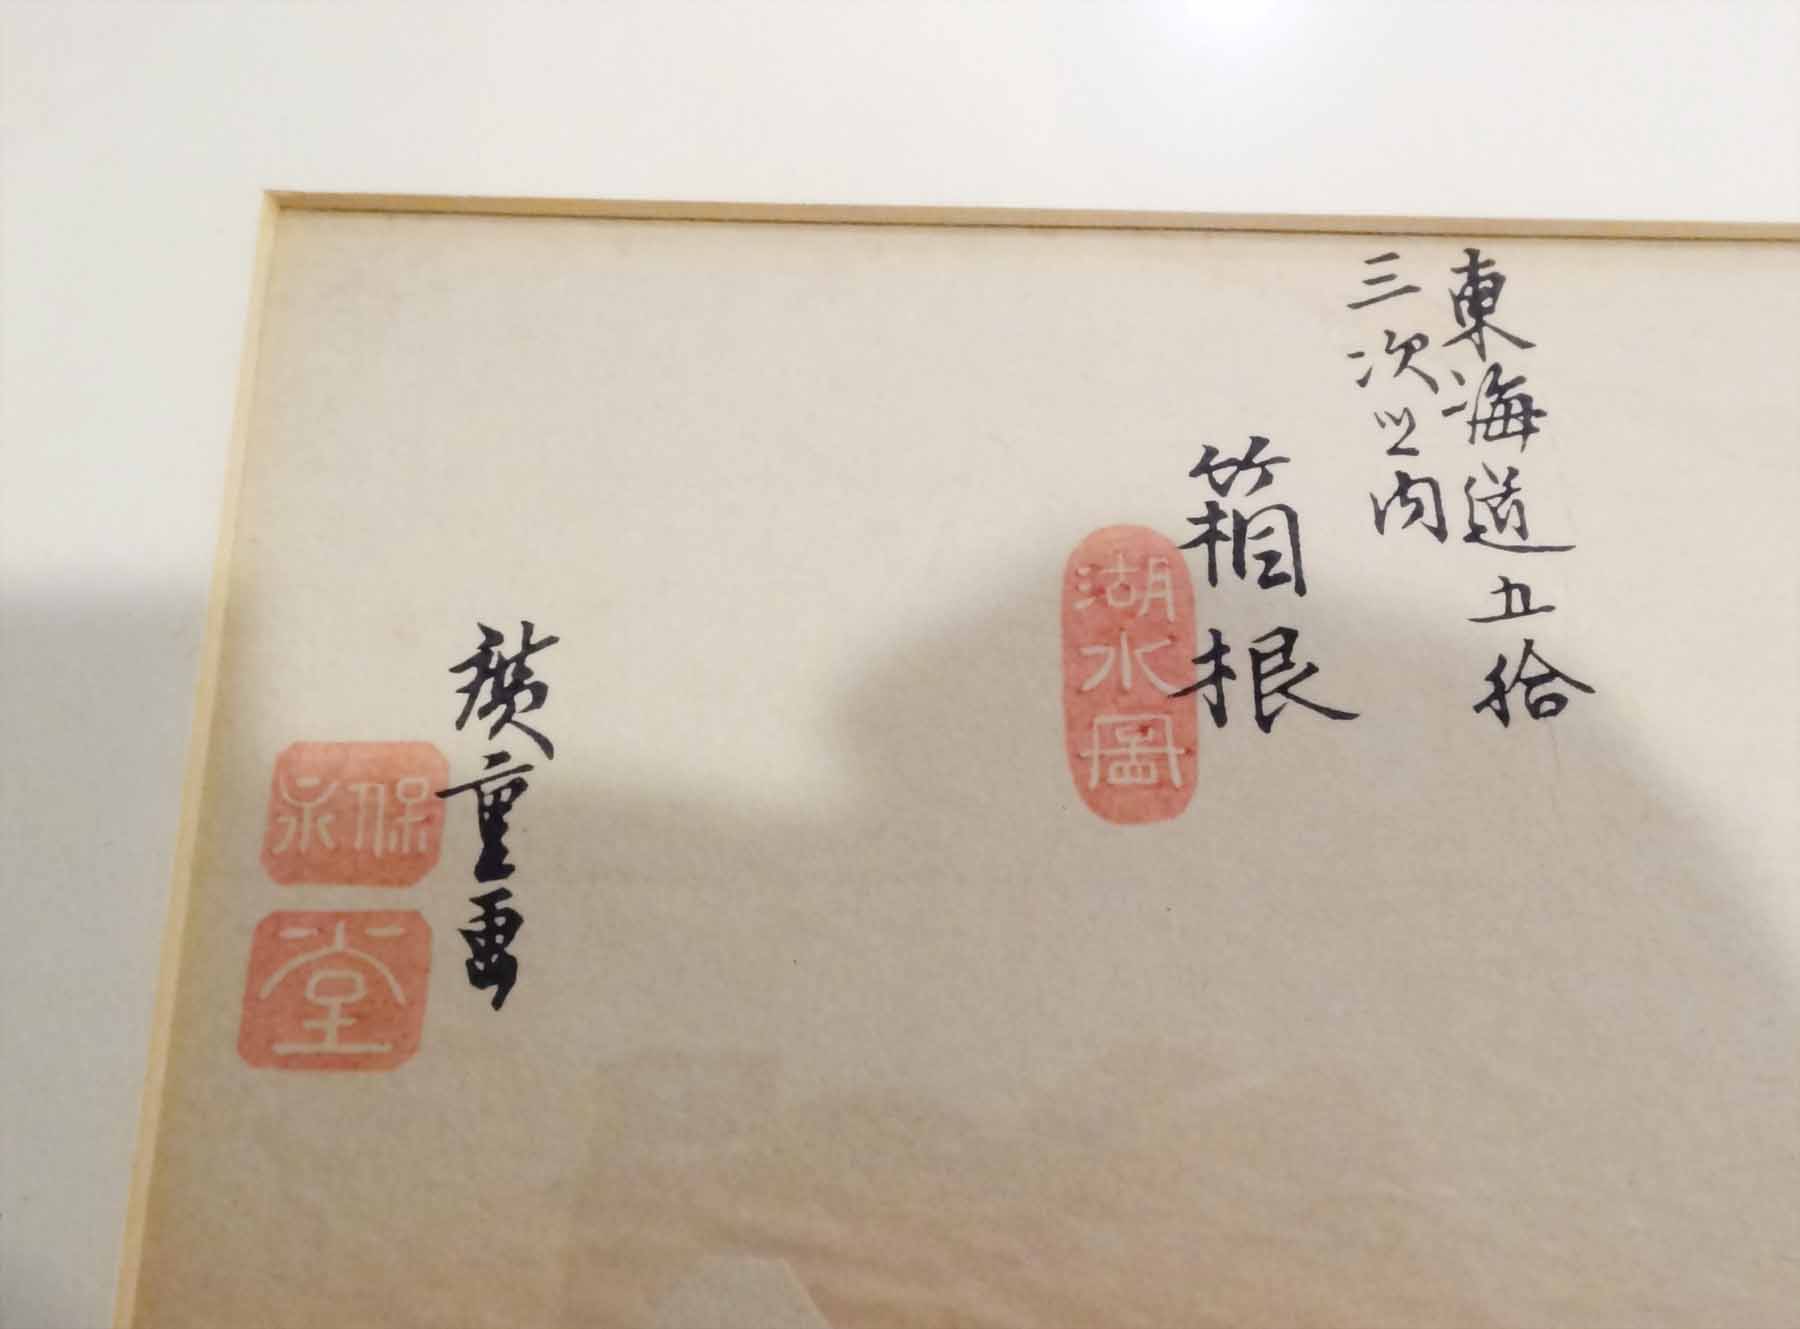 東海道五拾
三次之内
箱根
湖水圖
廣重画
保永
堂